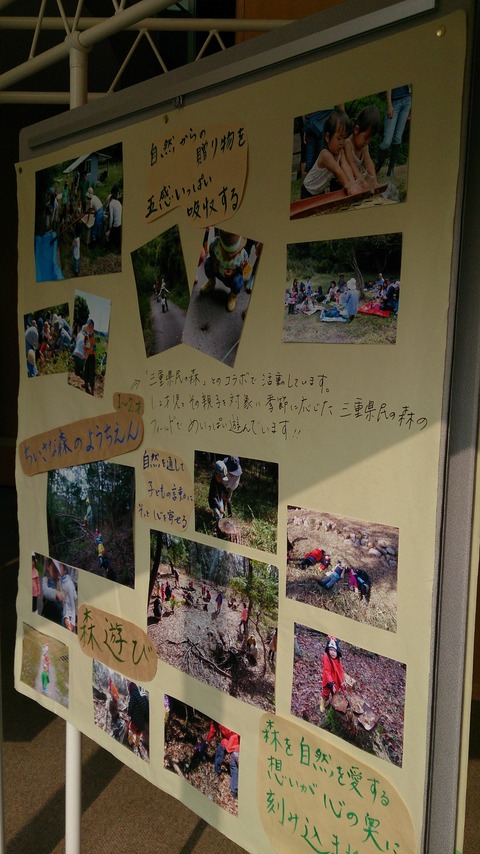 自然からの
贈り物を
五感いっぱい
吸収する
「三重県民の森」とのコラボで活動しています。
1〜2才児とその親子を対象に季節に応じた三重県民の森の
フィールドでめいっぱい遊んでいます!!
1〜2才
ちいさな森のようちえん
自然を通して
子どもの言動に
そっと心を寄せる
森遊び
森を自然を愛する
想いが心の奥に
刻み込まれ